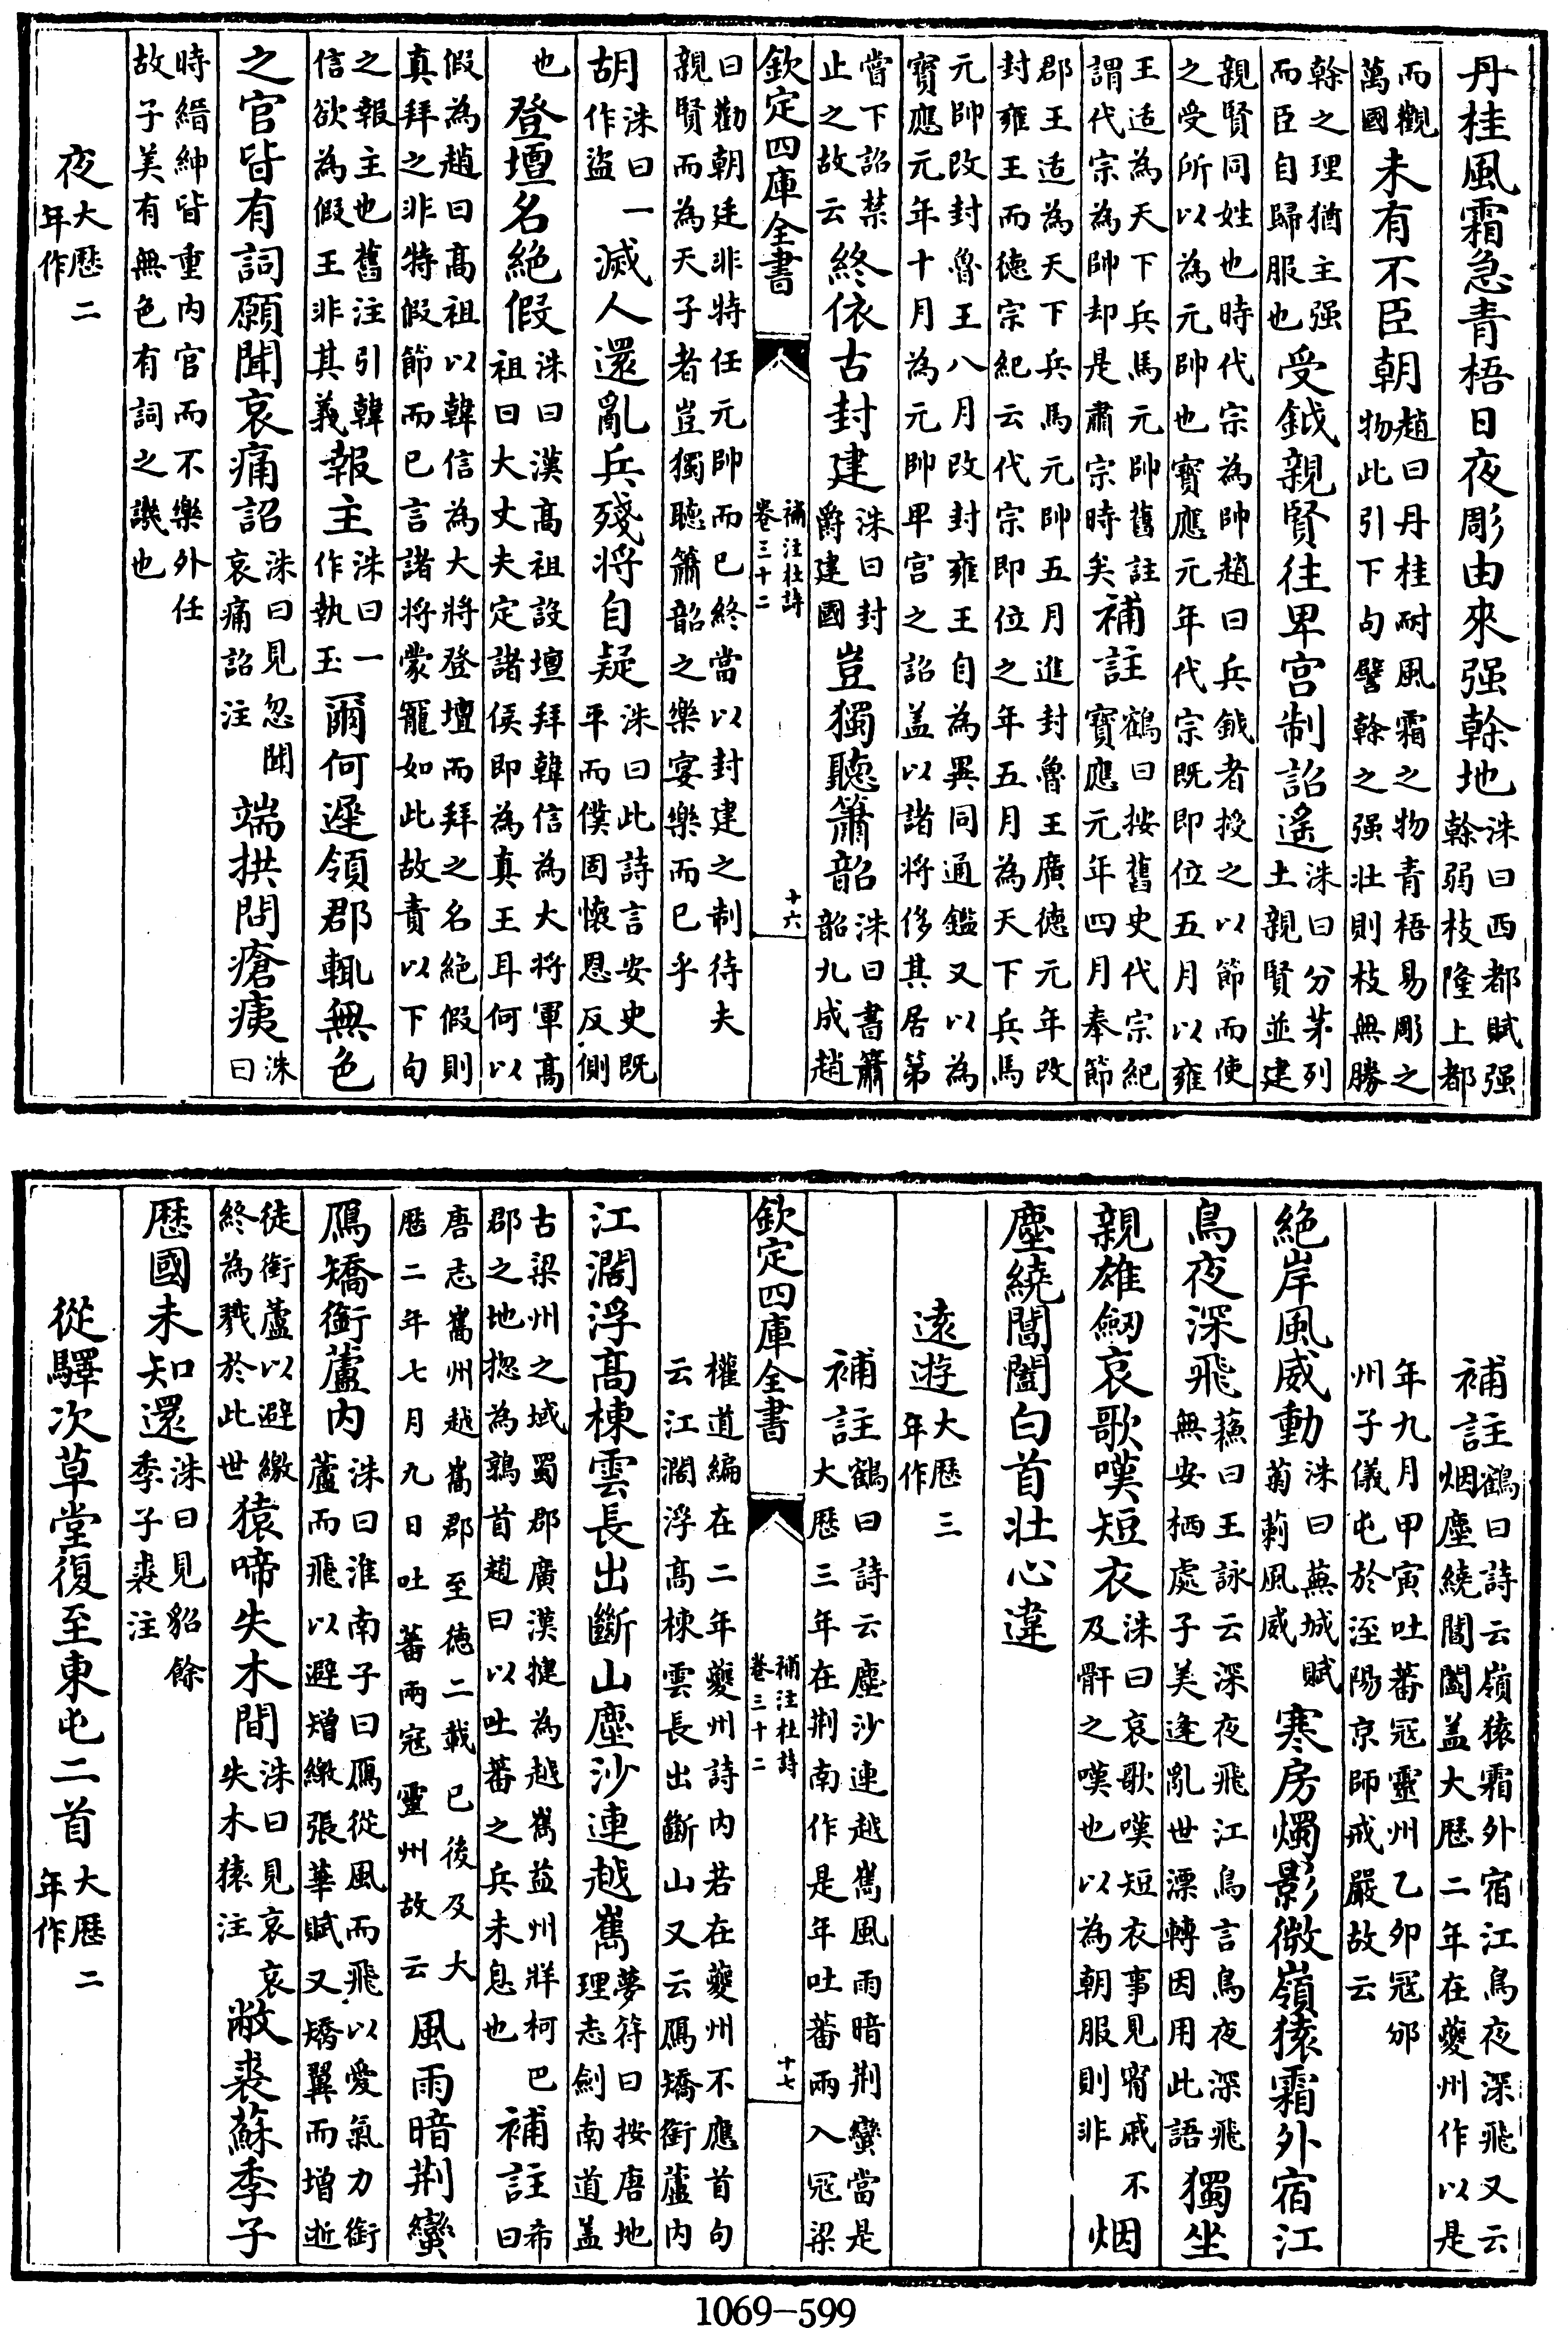 丹桂風霜急青梧日夜彫由來强幹地洙曰西都賦强幹弱枝隆上都
而觀萬國未有不臣朝趙曰丹桂耐風霜之物青梧易彫之物此引下句譬幹之强壯則枝無勝
幹之理猶主强而臣自歸服也受鉞親賢往卑宮制詔遙洙曰分茅列土親賢並建
親賢同姓也時代宗為帥趙曰兵鉞者授之以節而使之受所以為元帥也寶應元年代宗既即位五月以雍
王适為天下兵馬元帥舊註謂代宗為帥却是肅宗時矣補註鶴曰按舊史代宗紀寶應元年四月奉節
郡王适為天下兵馬元帥五月進封魯王廣德元年改封雍王而德宗紀云代宗即位之年五月為天下兵馬
元帥改封魯王八月改封雍王自為異同通鑑又以為寶應元年十月為元帥卑宮之詔盖以諸將侈其居第
嘗下詔禁止之故云終依古封建洙曰封爵建國豈獨聽簫韶洙曰書簫韶九成趙
欽定四庫全書 補注杜詩卷三十二 十六
曰勸朝廷非特任元帥而已終當以封建之制待夫親賢而為天子者豈獨聽簫韶之樂宴樂而已乎
胡洙曰一作盜滅人還亂兵殘將自疑洙曰此詩言安史既平而僕固懷恩反側
也登壇名絕假洙曰漢高祖設壇拜韓信為大將軍高祖曰大丈夫定諸侯即為真王耳何以
假為趙曰高祖以韓信為大將登壇而拜之名絕假則真拜之非特假節而已言諸將蒙寵如此故責以下句
之報主也舊注引韓信欲為假王非其義報主洙曰一作執玉爾何遲領郡輒無色
之官皆有詞願聞哀痛詔洙曰見忽聞哀痛詔注端拱問瘡痍洙曰
時縉紳皆重内官而不樂外任故子美有無色有詞之譏也
夜大歷二年作
補註鶴曰詩云嶺猿霜外宿江鳥夜深飛又云烟塵繞閶闔盖大歷二年在夔州作以是
年九月甲寅吐蕃冦靈州乙卯冦邠州子儀屯於涇陽京師戒嚴故云
絕岸風威動洙曰蕪城賦菊莿風威寒房燭影微嶺猿霜外宿江
鳥夜深飛蘓曰王詠云深夜飛江鳥言鳥夜深飛無安栖處子美逢亂世漂轉因用此語獨坐
親雄劒哀歌嘆短衣洙曰哀歌嘆短衣事見甯戚不及骭之嘆也以為朝服則非烟
塵繞閶闔白首壮心違
遠遊大歷三年作
補註鶴曰詩云塵沙連越嶲風雨暗荆蠻當是大歷三年在荆南作是年吐蕃兩入冦梁
欽定四庫全書 補注杜詩卷三十二 十七
權道編在二年夔州詩内若在夔州不應首句云江濶浮高棟雲長出斷山又云鴈矯銜蘆内
江濶浮高棟雲長出斷山塵沙連越嶲夢符曰按唐地理志劍南道盖
古梁州之域蜀郡廣漢揵為越嶲益州牂柯巴郡之地揔為鶉首趙曰以吐蕃之兵未息也補註希曰
唐志嶲州越嶲郡至德二載已後及大歷二年七月九日吐蕃兩冦靈州故云風雨暗荆蠻
鴈矯銜蘆内洙曰淮南子曰鴈從風而飛以愛氣力銜蘆而飛以避矰繳張華賦又矯翼而增逝
徒銜蘆以避繳終為戮於此世猿啼失木間洙曰見哀哀失木猿注敝裘蘇季子
歷國未知還洙曰見貂餘季子裘注
從驛次草堂復至東屯二首大歷二年作
1069-599